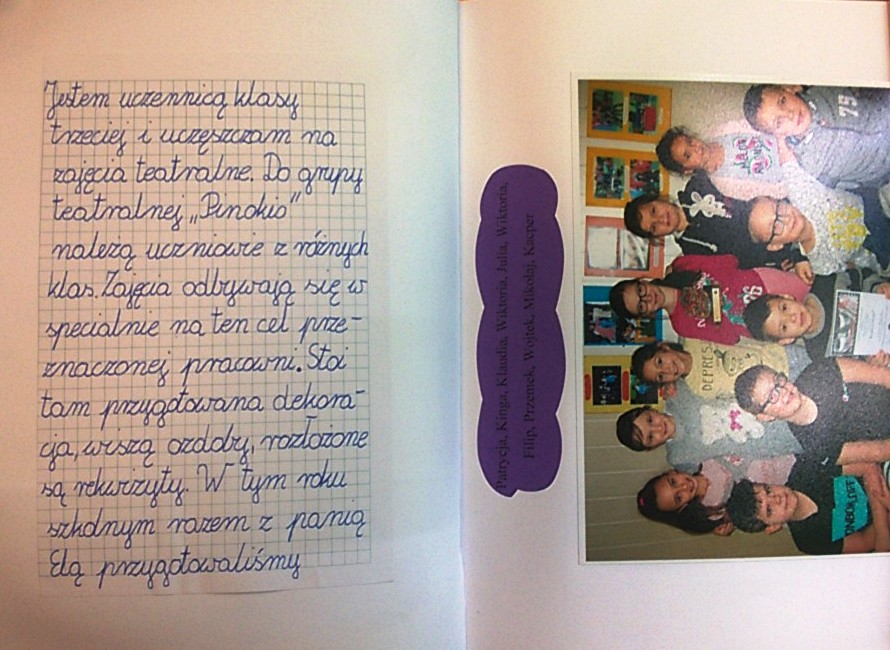 Jestem uczennicą klasy
trzeciej i uczęszczam na
zajęcia teatralne. Do grupy
teatralnej „Pinokio”
należą uczniowie z różnych
klas. Zajęcia odbywają się w
specjalnie na ten cel prze-
znaczonej pracowni. Stoi
tam przygotowana dekora-
cja, wiszą ozdoby, rozłożone
są rekwizyty. W tym roku
szkolnym razem z panią
Elą przygotowaliśmy
Patrycja, Kinga, Klaudia, Wiktoria, Julia, Wiktoria,
Filip, Przemek, Wojtek, Mikołaj, Kacper
75
DEPRES